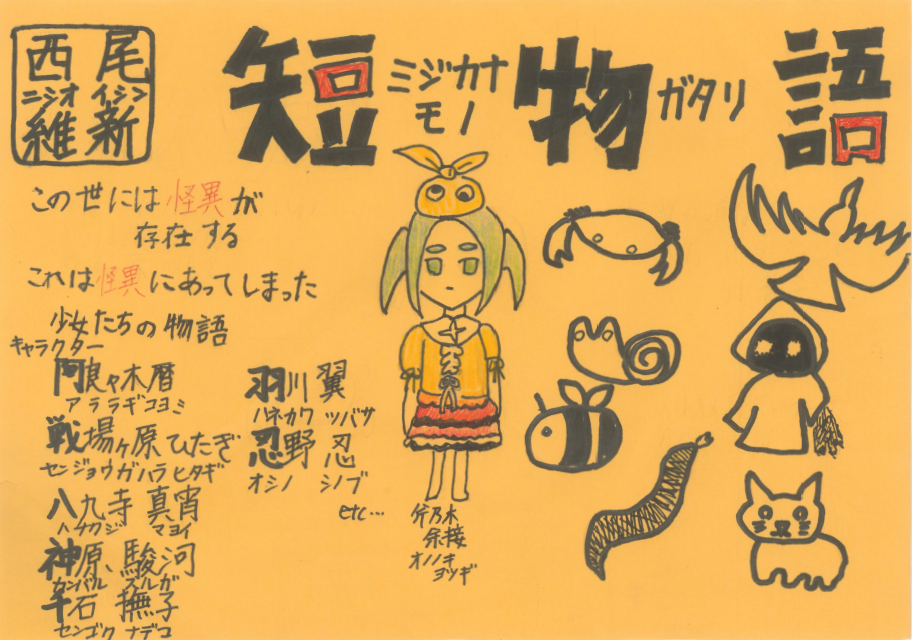 西尾
ニシオ イシン
維新
短 物 語
ミジカナ
モノ
ガタリ
この世には怪異が
存在する
これは怪異にあってしまった
少女たちの物語
キャラクター
阿良々木暦
アララギコヨミ
戦場ヶ原ひたぎ
センジョウガハラヒタギ
八九寺 真宵
ハチクジ マヨイ
神原、駿河
カンバル スルガ
千石 撫子
センゴク ナデコ
羽川 翼
ハネカワ ツバサ
忍野 忍
オシノ シノブ
etc…
斧乃木
余接
オノノキ
ヨツギ